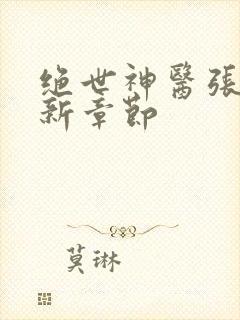 绝世神醫張
新章節
莫琳